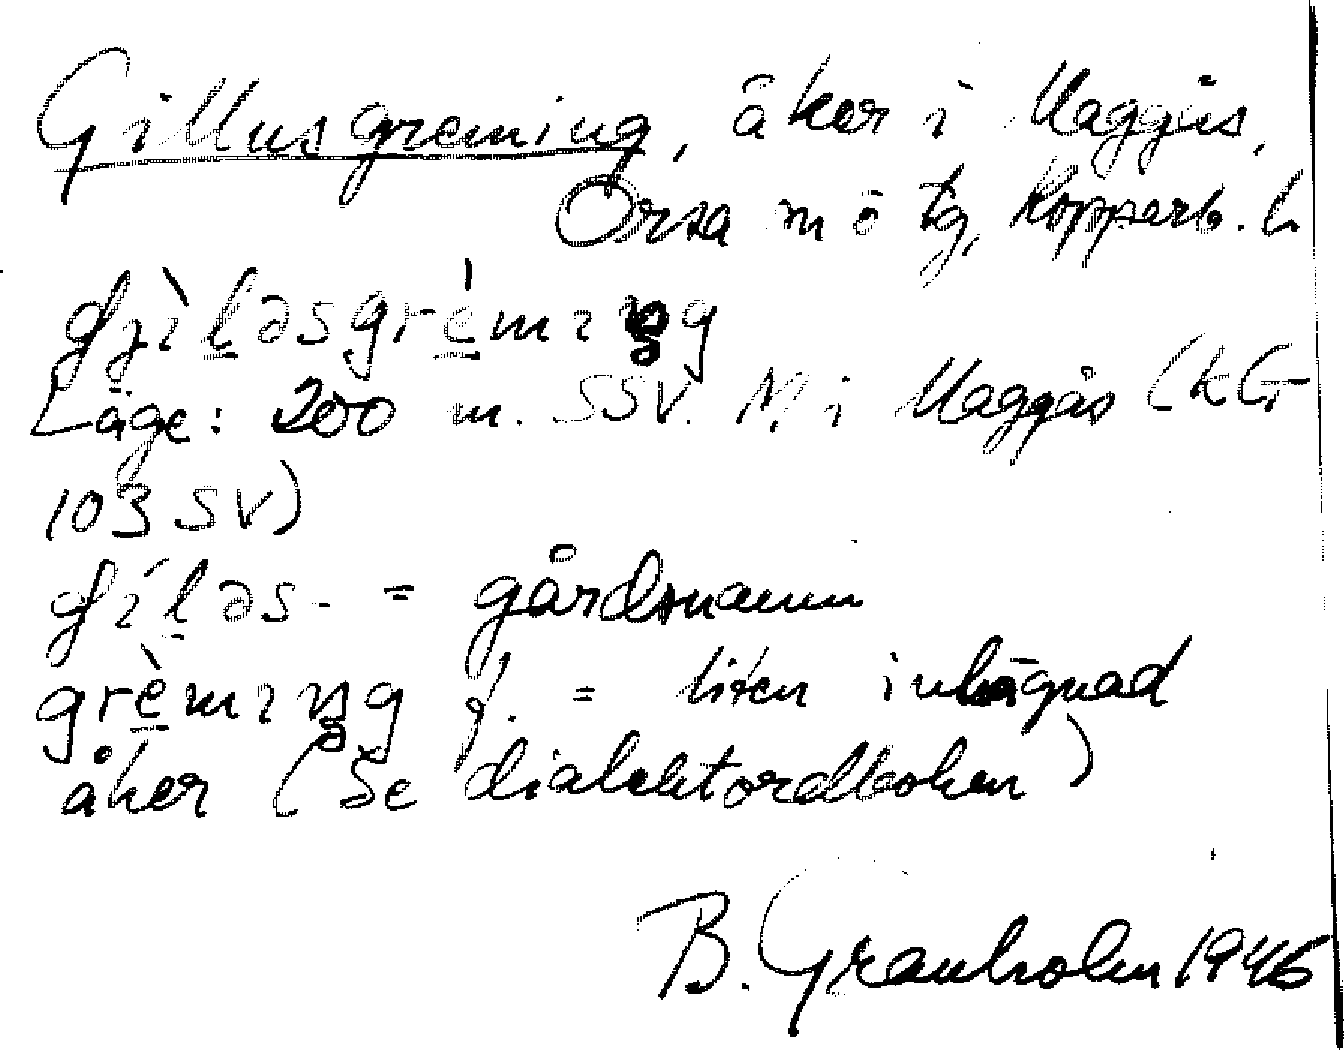 Gillus greming, åker i Maggås,
Orsa m o tg, Kopparb. l.
gìləsgrèmıŋg
Läge: 200 m. SSV. M, i Maggås (k G
103 SV)
gíləs- = gårdsnamn
grèmıŋg f. = liten inhägnad
åker (Se dialektordboken)
B. Granholm 1946